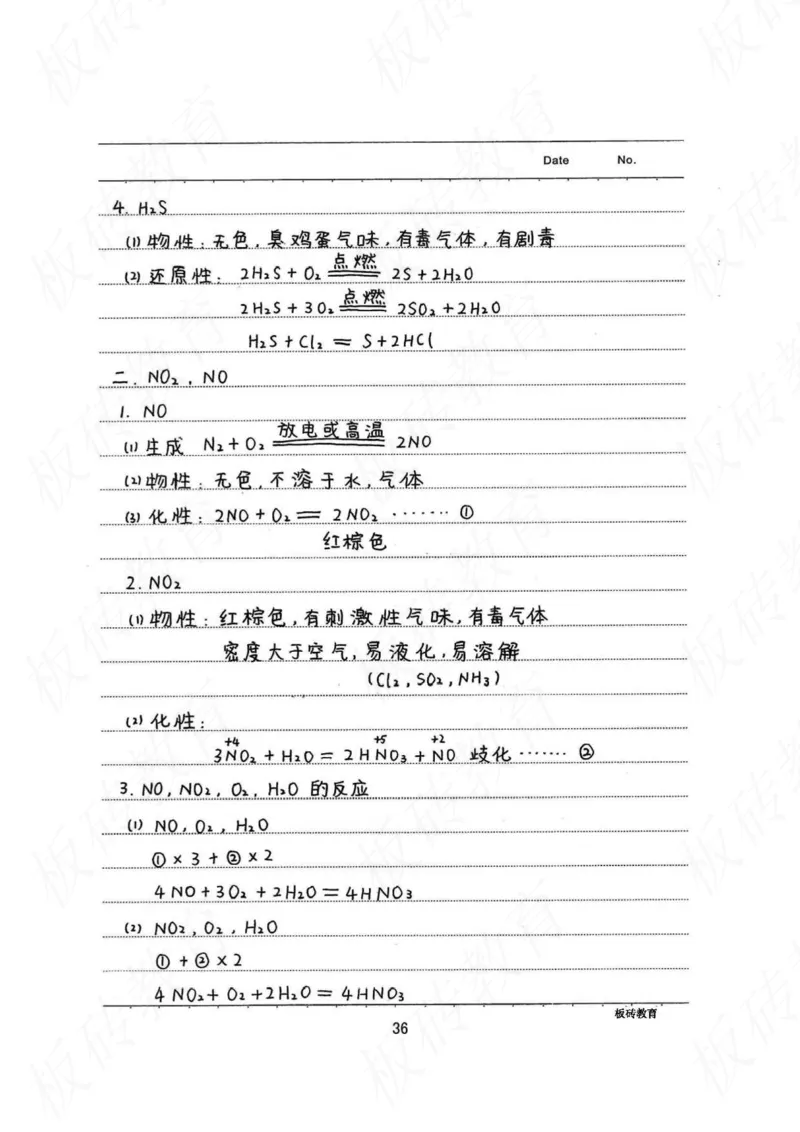 Date No.
4. H₂S
(1) 物性：无色，臭鸡蛋气味，有毒气体，有剧毒
(2) 还原性：2H₂S + O₂ 点燃 2S + 2H₂O
2H₂S + 3O₂ 点燃 2SO₂ + 2H₂O
H₂S + Cl₂ = S + 2HCl
二. NO₂，NO
1. NO
(1) 生成 N₂ + O₂ 放电或高温 2NO
(2) 物性：无色，不溶于水，气体
(3) 化性：2NO + O₂ = 2NO₂ ······· ①
红棕色
2. NO₂
(1) 物性：红棕色，有刺激性气味，有毒气体
密度大于空气，易液化，易溶解
(Cl₂，SO₂，NH₃)
(2) 化性：
+4 +5 +2
3NO₂ + H₂O = 2HNO₃ + NO 歧化 ······· ②
3. NO，NO₂，O₂，H₂O 的反应
(1) NO，O₂，H₂O
① × 3 + ② × 2
4NO + 3O₂ + 2H₂O = 4HNO₃
(2) NO₂，O₂，H₂O
① + ② × 2
4NO₂ + O₂ + 2H₂O = 4HNO₃
板砖教育
36